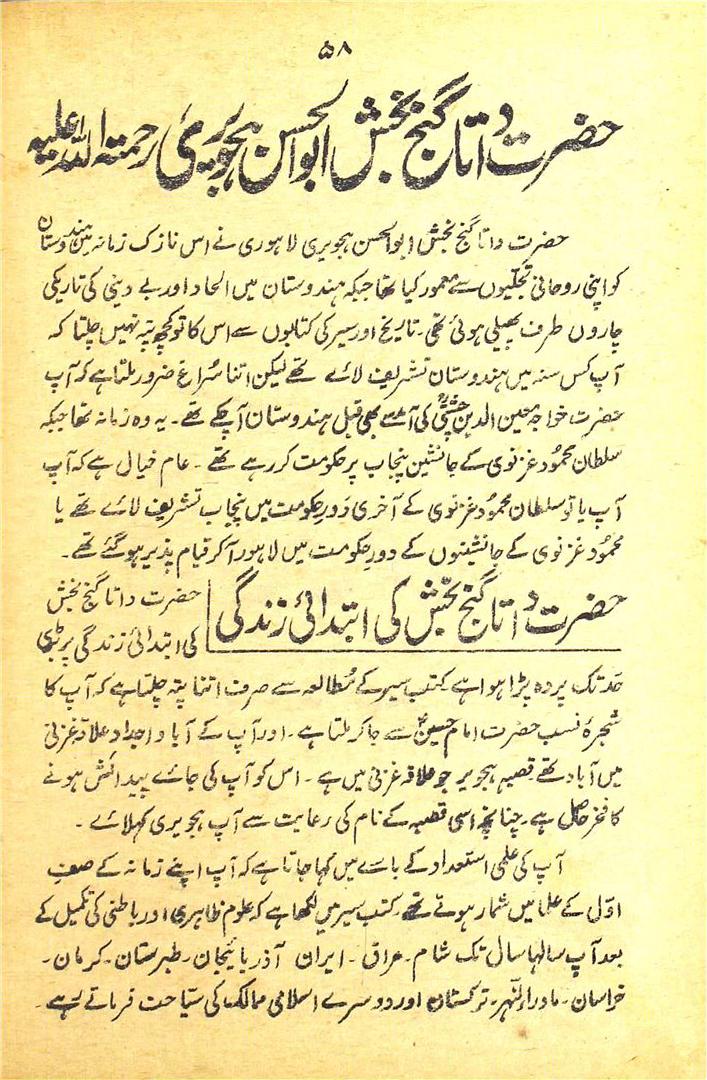 ۵۸
حضرت داتا گنج بخش ابوالحسن ہجویری رحمتہ اللہ علیہ
حضرت داتا گنج بخش ابوالحسن ہجویری لاہوری نے اس نازک زمانہ میں ہندوستان
کو اپنی روحانی تجلیوں سے معمور کیا تھا جبکہ ہندوستان میں الحاد اور بے دینی کی تاریکی
چاروں طرف پھیلی ہوئی تھی۔ تاریخ اور سیر کی کتابوں سے اس کا تو کچھ پتہ نہیں چلتا کہ
آپ کس سنہ میں ہندوستان تشریف لائے تھے لیکن اتنا سُراغ ضرور ملتا ہے کہ آپ
حضرت خواجہ معین الدین چشتیؒ کی آمد سے بھی قبل ہندوستان آ چکے تھے۔ یہ وہ زمانہ تھا جبکہ
سلطان محمود غزنوی کے جانشین پنجاب پر حکومت کر رہے تھے۔ عام خیال ہے کہ آپ
آپ یا تو سلطان محمُود غزنوی کے آخری دَورِ حکومت میں پنجاب تشریف لائے تھے یا
محمُود غزنوی کے جانشینوں کے دورِ حکومت میں لاہور آ کر قیام پذیر ہو گئے تھے۔
حضرت داتا گنج بخش کی ابتدائی زندگی
حضرت داتا گنج بخش
کی ابتدائی زندگی پر بڑی
حد تک پردہ پڑا ہوا ہے کتب سیر کے مُطالعہ سے صرف اتنا پتہ چلتا ہے کہ آپ کا
شجرۂ نسب حضرت امام حسینؑ سے جا کر ملتا ہے۔ اور آپ کے آبا و اجداد علاقہ غزنی
میں آباد تھے قصبہ ہجویر جو علاقہ غزنی میں ہے۔ اس کو آپ کی جائے پیدائش ہونے
کا فخر حاصل ہے۔ چنانچہ اسی قصبہ کے نام کی رعایت سے آپ ہجویری کہلائے۔
آپ کی علمی استعداد کے بارے میں کہا جاتا ہے کہ آپ اپنے زمانہ کے صفِ
اوّل کے علما میں شمار ہوتے تھے۔ کتب سیر میں لکھا ہے کہ علوم ظاہری اور باطنی کی تکمیل کے
بعد آپ سالہا سال تک شام۔ عراق۔ ایران آذربائیجان۔ طبرستان۔ کرمان۔
خراسان۔ ماوراء النہر۔ ترکستان اور دوسرے اسلامی ممالک کی سیاحت فرماتے رہے۔